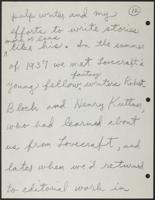 (12)
pulp writer and my
efforts to write stories
like his. In the summer
of 1937 we met Lovecraft's
fantasy
young fellow writers Robert
Bloch and Henry Kuttner,
who had learned about
us from Lovecraft, and
later when we'd returned
to editorial work in